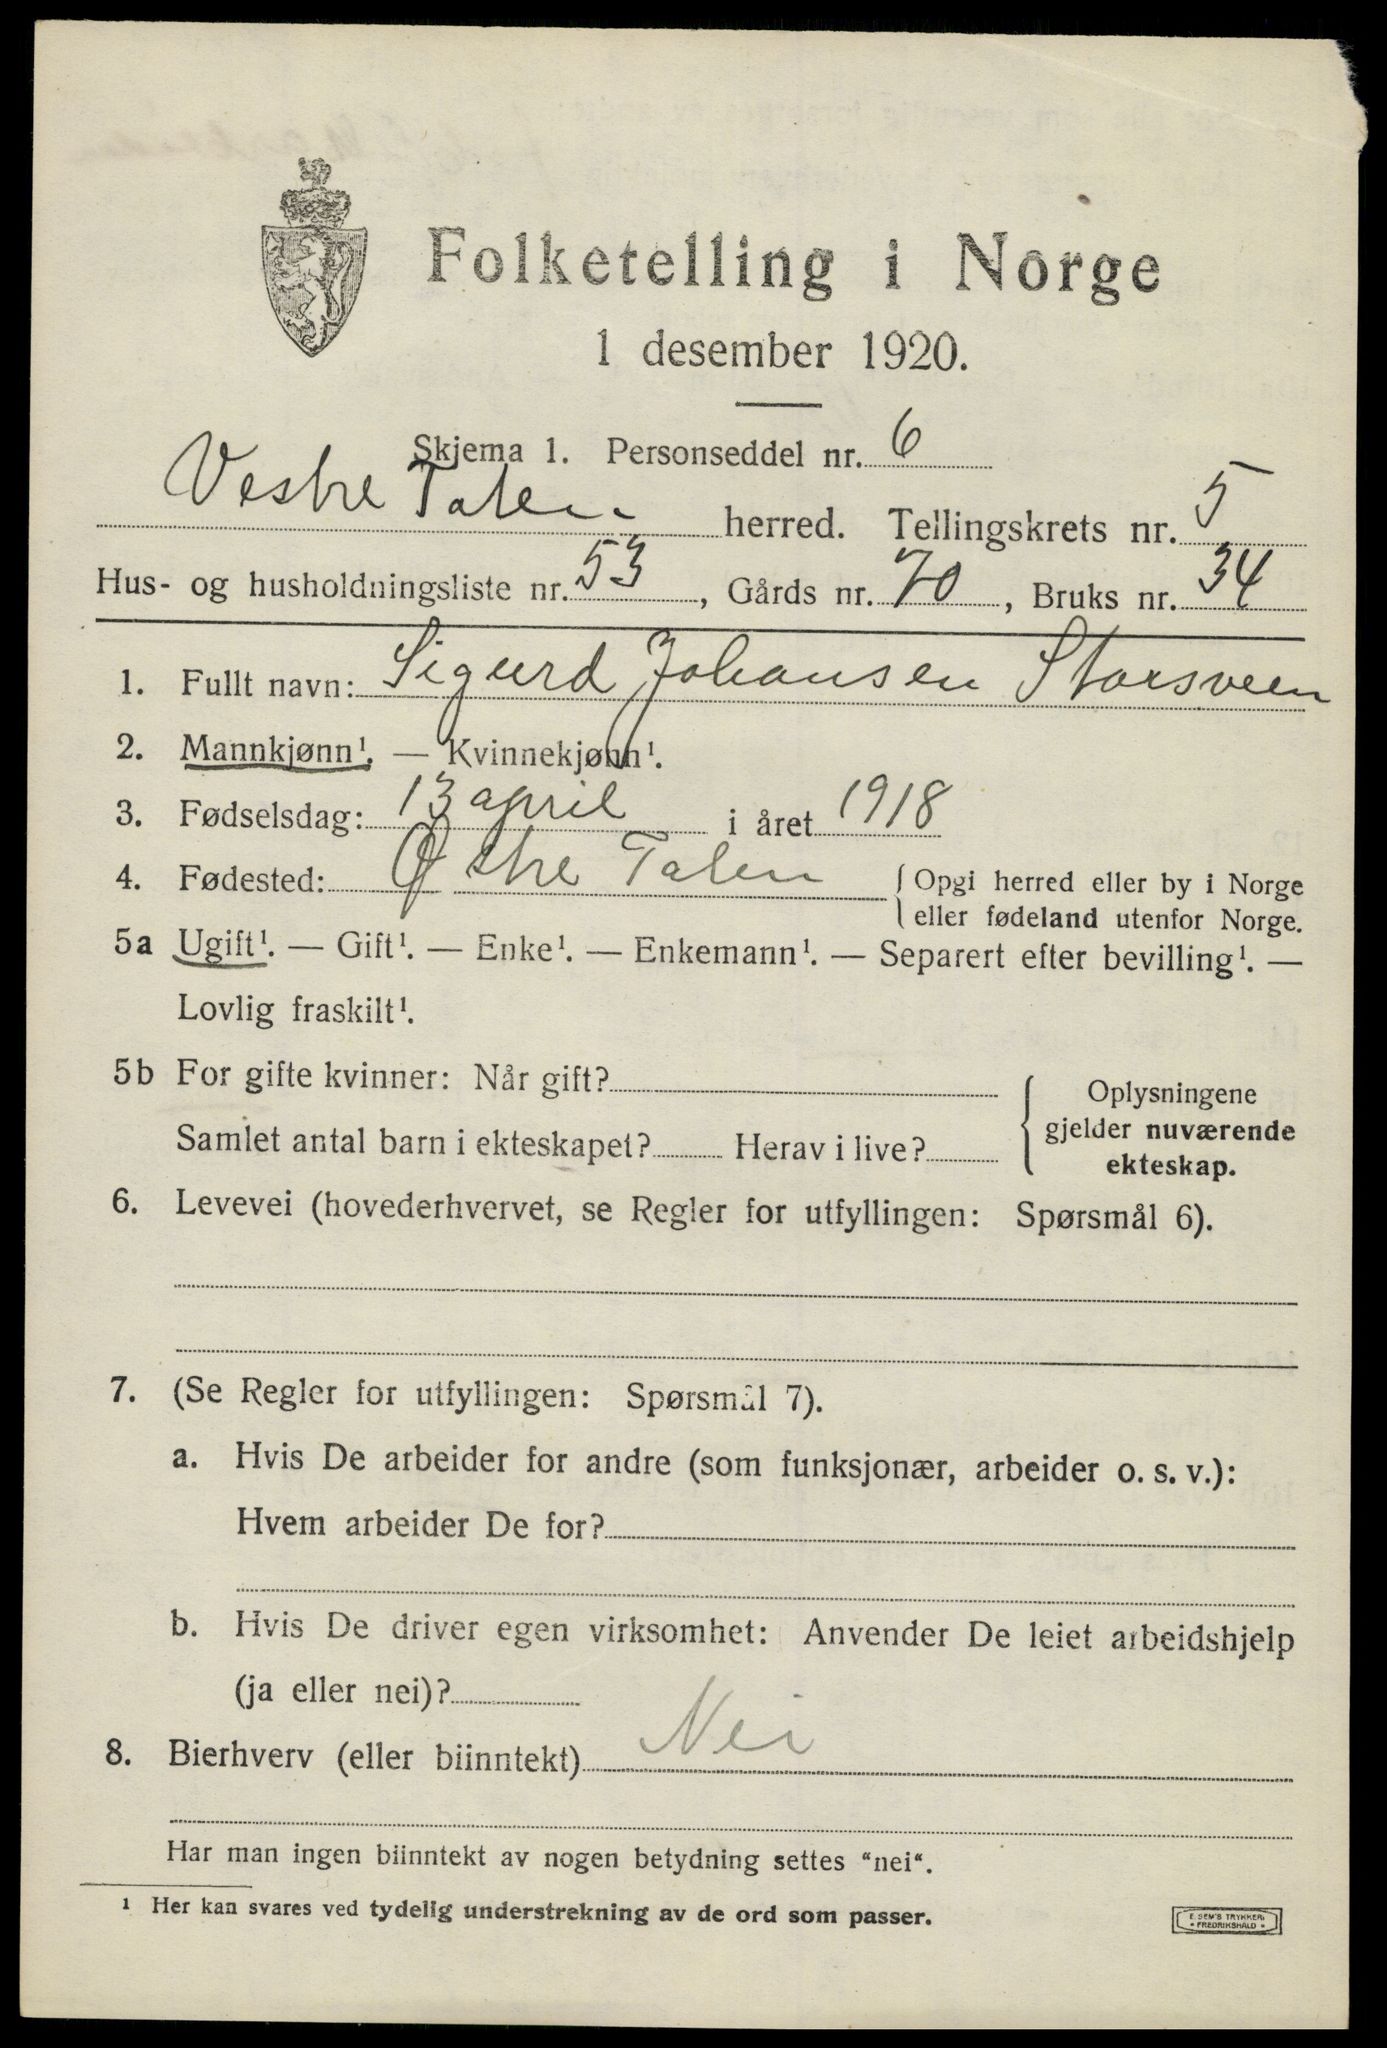 Folketelling i Norge
1 desember 1920.
Skjema 1. Personseddel nr. 6
Vestre Toten herred. Tellingskrets nr. 5
Hus- og husholdningsliste nr. 53, Gårds nr. 70, Bruks nr. 34
1. Fullt navn: Sigurd Johansen Storsveen
2. Mannkjønn¹. — Kvinnekjønn¹.
3. Fødselsdag: 13 april i året 1918
4. Fødested: Østre Toten { Opgi herred eller by i Norge
eller fødeland utenfor Norge.
5a Ugift¹. — Gift¹. — Enke¹. — Enkemann¹. — Separert efter bevilling¹. —
Lovlig fraskilt¹.
5b For gifte kvinner: Når gift?
Samlet antal barn i ekteskapet? Herav i live?
{ Oplysningene
gjelder nuværende
ekteskap.
6. Levevei (hovederhvervet, se Regler for utfyllingen: Spørsmål 6).
7. (Se Regler for utfyllingen: Spørsmål 7).
a. Hvis De arbeider for andre (som funksjonær, arbeider o. s. v.):
Hvem arbeider De for?
b. Hvis De driver egen virksomhet: Anvender De leiet arbeidshjelp
(ja eller nei)?
8. Bierhverv (eller biinntekt) Nei
Har man ingen biinntekt av nogen betydning settes “nei“.
¹ Her kan svares ved tydelig understrekning av de ord som passer.
E. SEM'S TRYKKERI
• FREDRIKSHALD •